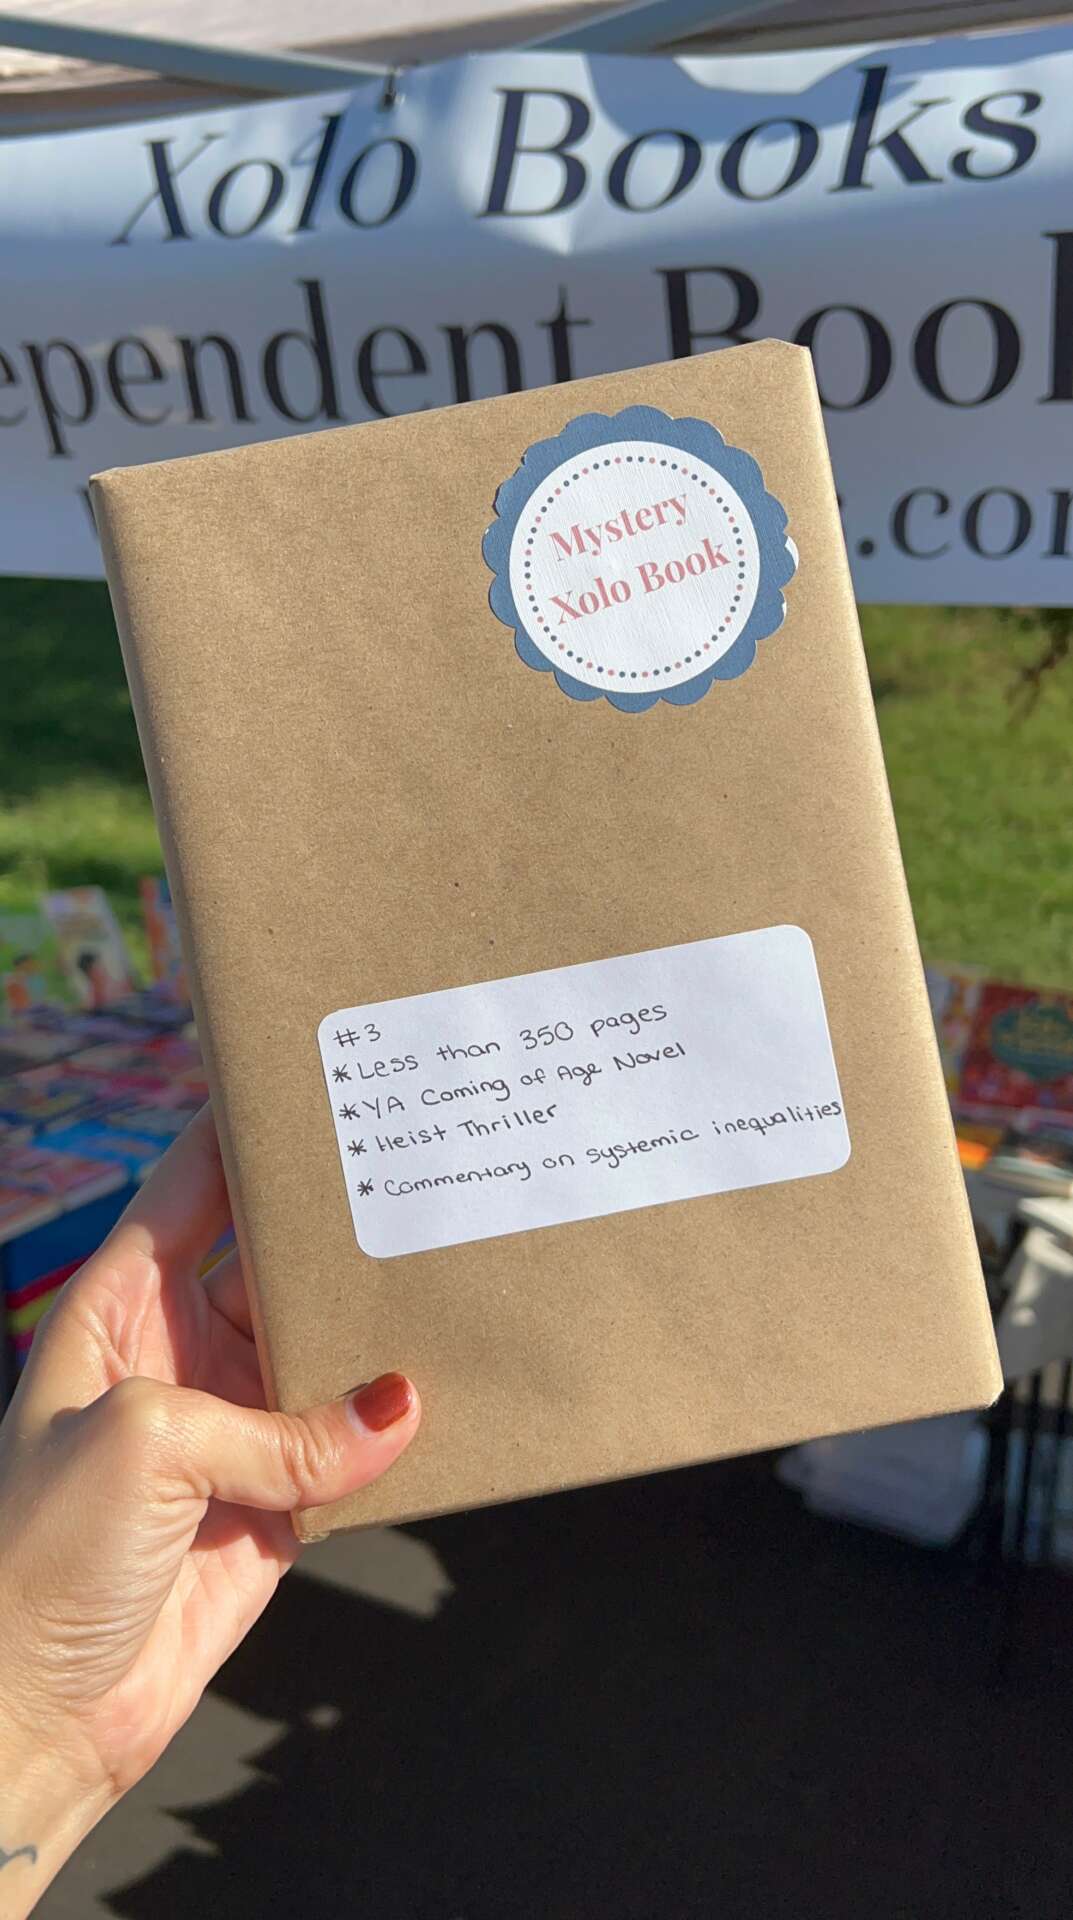 Xolo Books
ependent Book
.com
Mystery
Xolo Book
#3
*Less than 350 pages
*YA Coming of Age Novel
*Heist Thriller
*Commentary on systemic inequalities